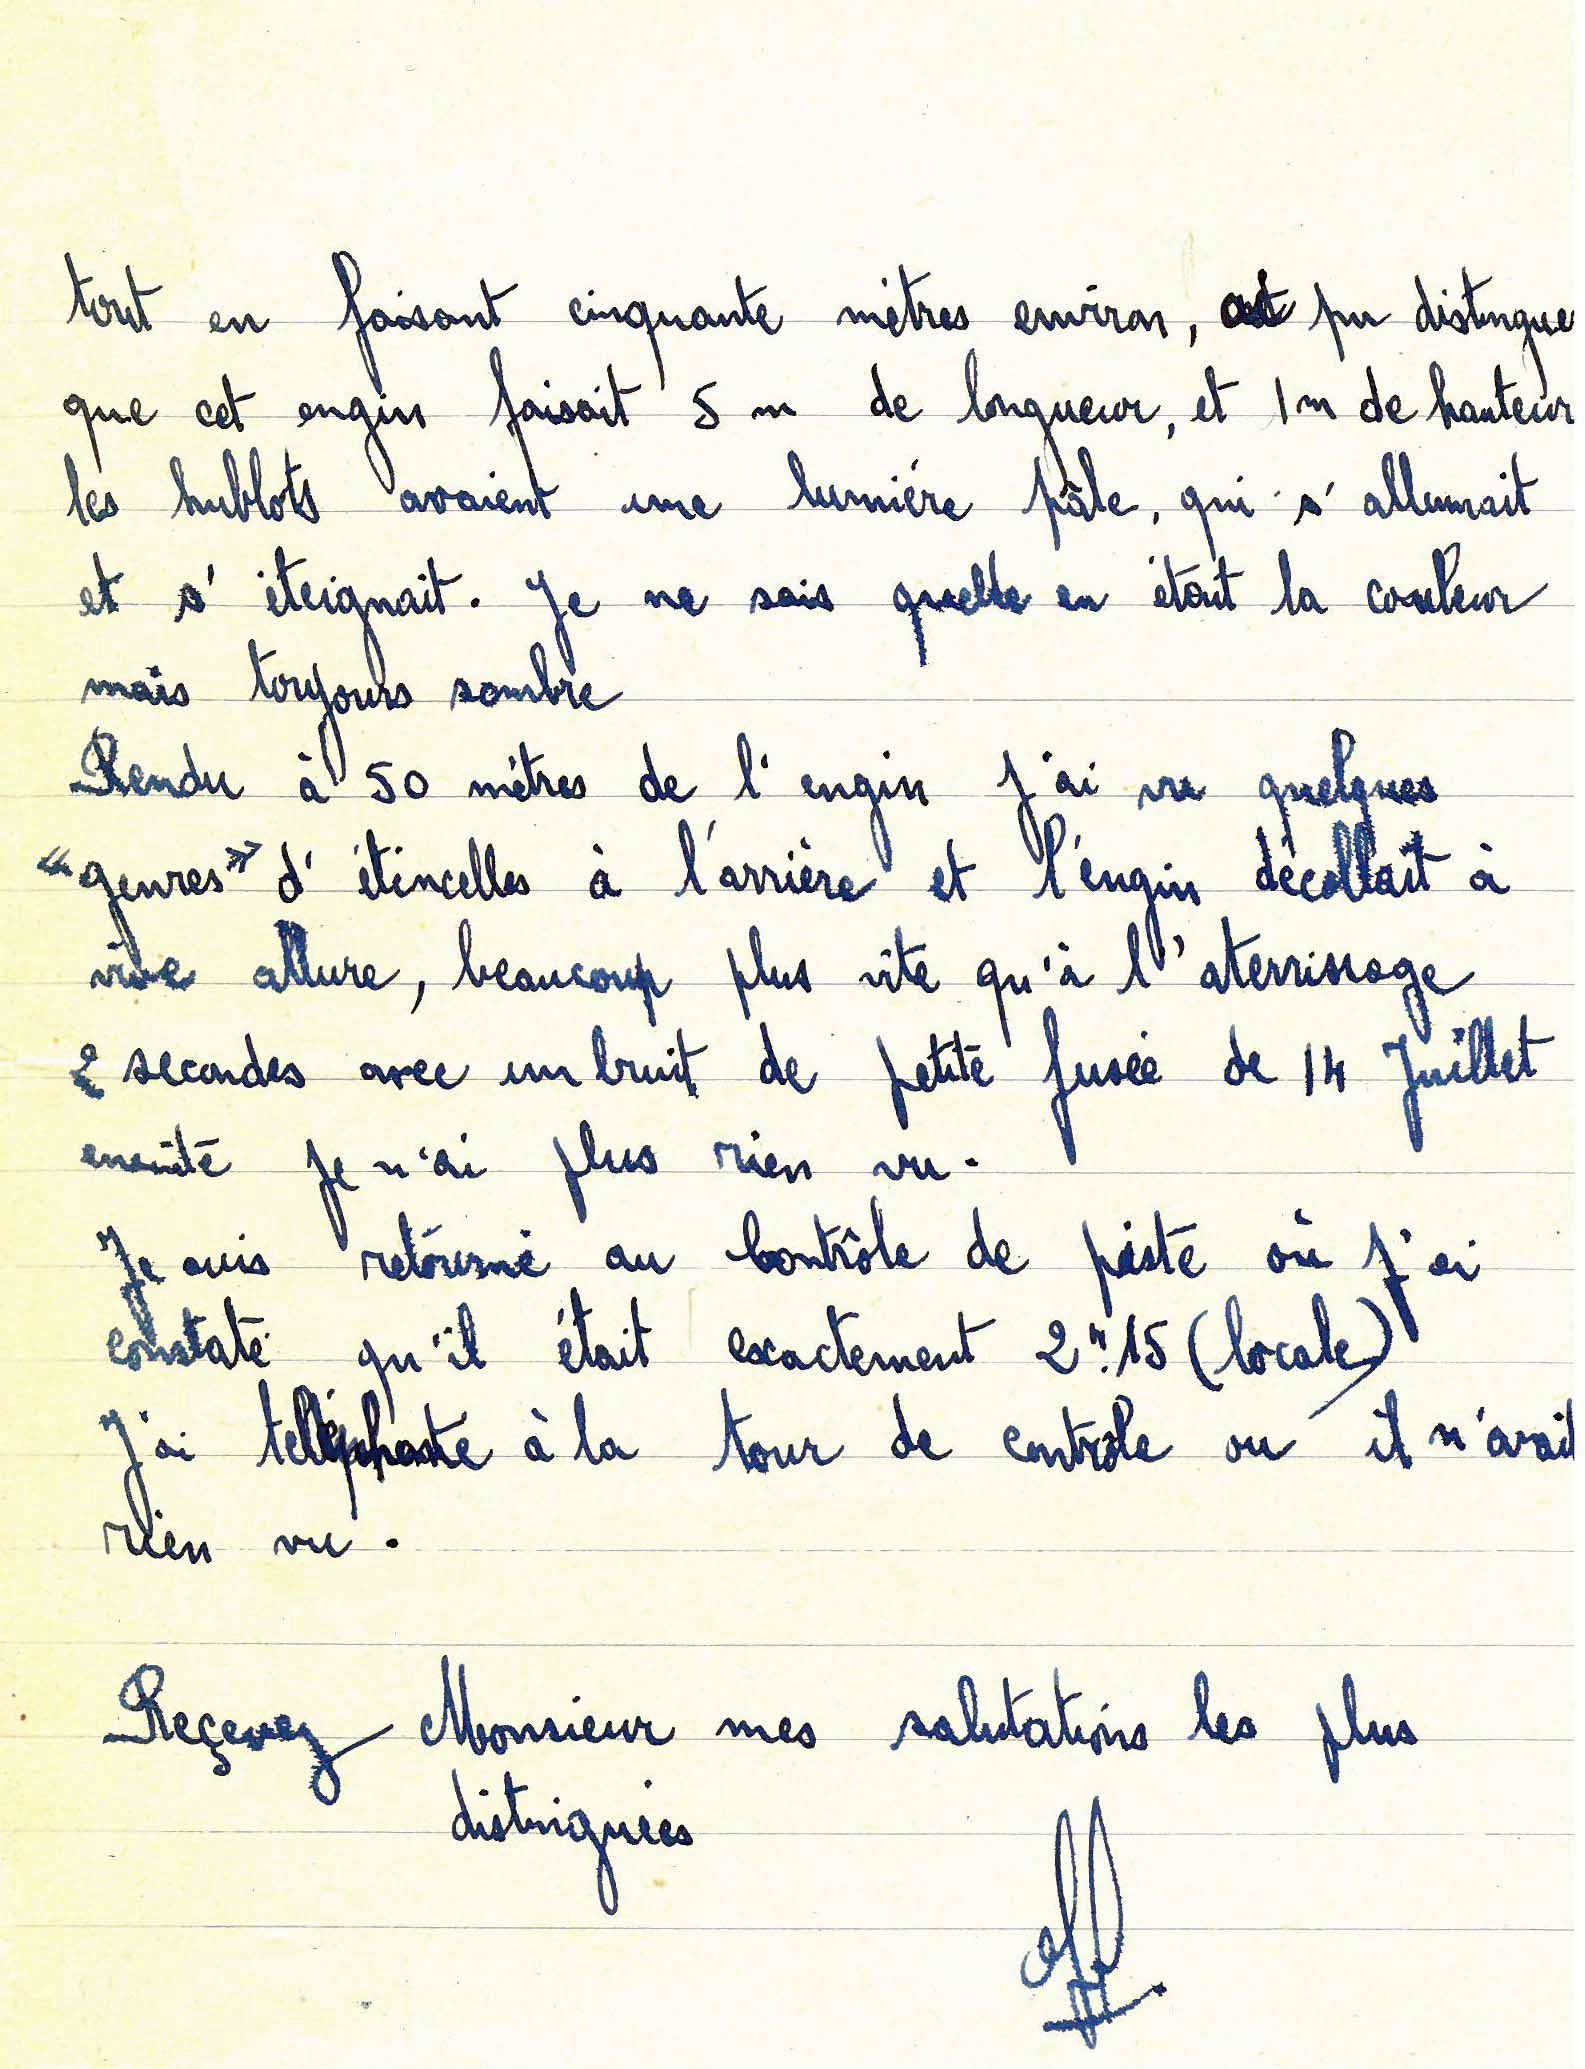 tout en faisant cinquante mètres environ, pu distingue
que cet engin faisait 5 m de longueur, et 1m de hauteur
les hublots avaient une lumiére pâle, qui s'allumait
et s'éteignait. Je ne sais quelle en était la couleur
mais toujours sombre
Rendu à 50 mètres de l'engin j'ai vu quelques
"genres" d'étincelles à l'arrière et l'engin décollait à
vive allure, beaucoup plus vite qu'à l'aterrissage
2 secondes avec un bruit de petite fusée de 14 Juillet
ensuite je n'ai plus rien vu.
Je suis retourné au Contrôle de piste où j'ai
constaté qu'il était exactement 2h.15 (locale)
J'ai à la tour de contrôle ou il n'avait
rien vu.
Reçevez Monsieur mes salutations les plus
distinguées